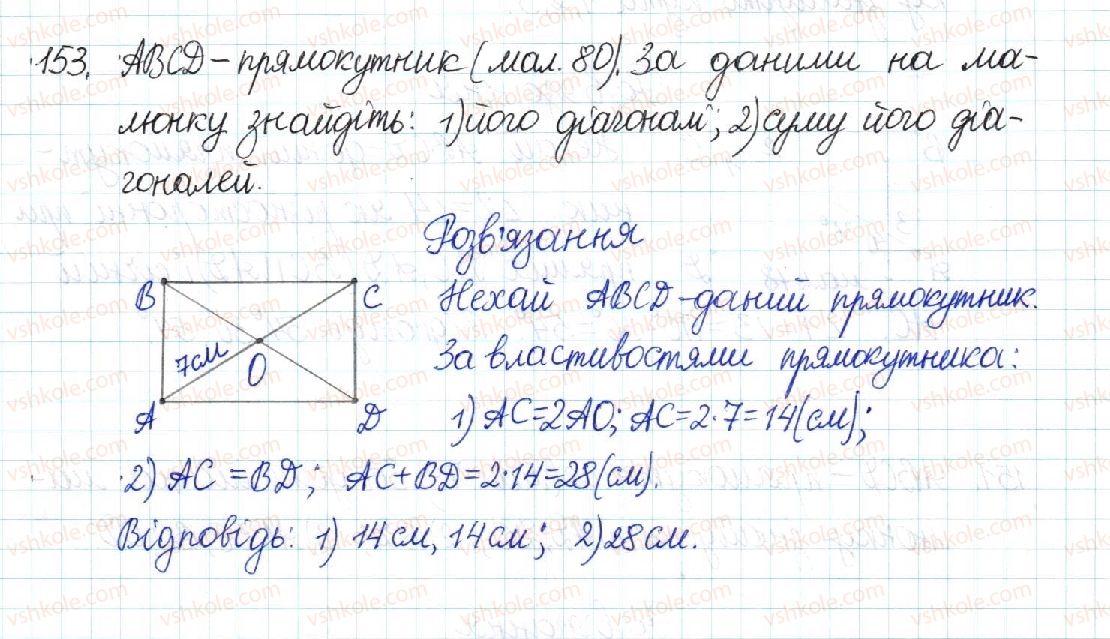 153. ABCD – прямокутник (мал. 80). За даними на ма-
люнку знайдіть: 1) його діагоналі; 2) суму його діа-
гоналей.
Розв'язання
B C
7см O
A D
Нехай ABCD – даний прямокутник.
За властивостями прямокутника:
1) AC = 2AO; AC = 2·7 = 14 (см);
2) AC = BD; AC + BD = 2·14 = 28 (см).
Відповідь: 1) 14 см, 14 см; 2) 28 см.
vshkole.com